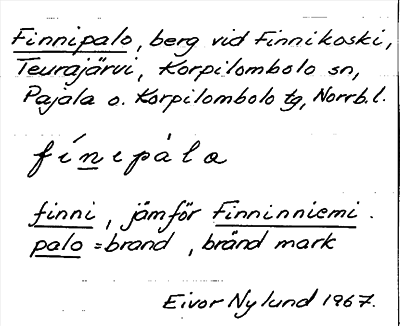 Finnipalo, berg vid Finnikoski,
Teurajärvi, Korpilombolo sn,
Pajala o. Korpilombolo tg, Norrb.l.
fínipàlo
finni, jämför Finninniemi.
palo = brand, bränd mark
Eivor Nylund 1967.